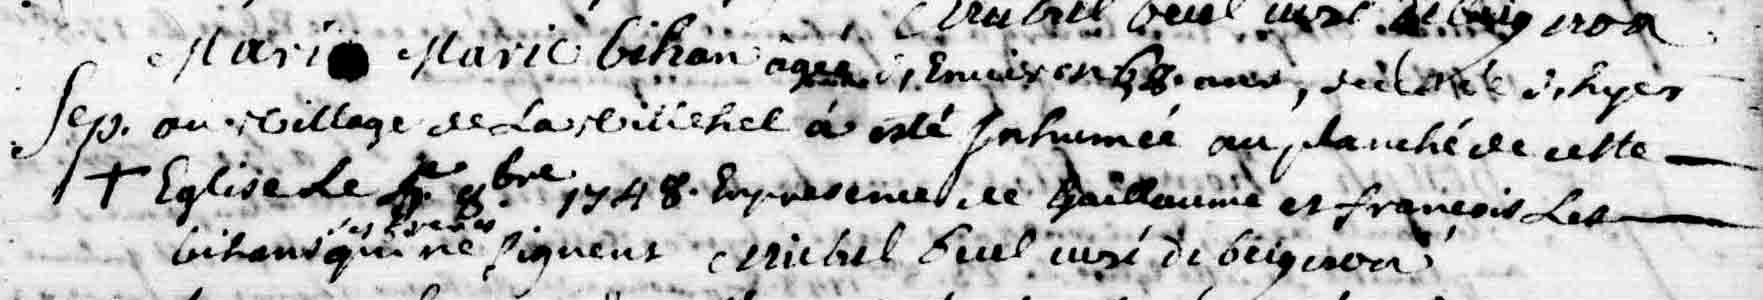 Michel buel curé de beignon
Mari Marie bihan agée d'Environ 68. ans, décédée d'hyer
Sep. au village de La villehel á esté Inhumée au planché de cette
† Eglise Le 8.bre 1748. En presence de Guillaume et françois Les
ses freres
bihans qui ne signent Michel buel curé de beignon